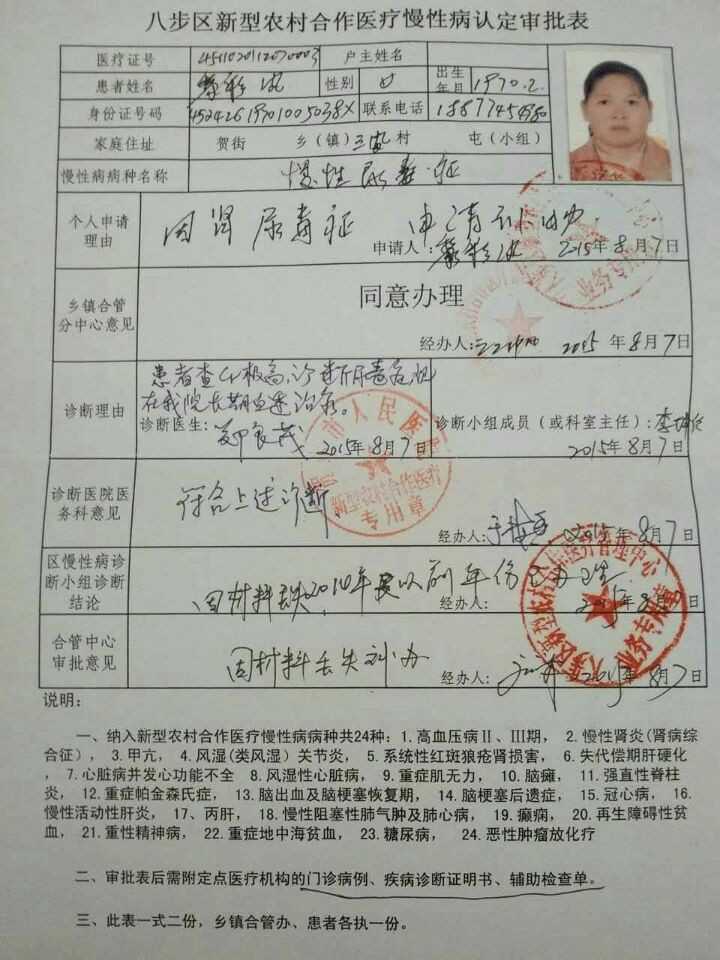 八步区新型农村合作医疗慢性病认定审批表
医疗证号 户主姓名
患者姓名 彩 性别 女 出生年月 1970.2.
身份证号码 45242619701005038X 联系电话
家庭住址 贺街 乡(镇) 村 屯(小组)
慢性病病种名称 慢性尿毒症
个人申请理由 因肾尿毒症 申请补办.
申请人: 2015年8月7日
乡镇合管分中心意见 同意办理
经办人: 2015年8月7日
诊断理由 患者查Cr极高,诊断尿毒症
在我院长期血透治疗。
诊断医生: 2015年8月7日
诊断小组成员(或科室主任): 李
2015年8月7日
诊断医院医务科意见 符合上述诊断
经办人: 2015年8月7日
区慢性病诊断小组诊断结论 因材料丢失, 年度以前年份已办理
经办人: 2015年8月 日
合管中心审批意见 因材料丢失补办
经办人: 2015年8月7日
市人民医
新型农村合作医疗
专用章
说明:
一、纳入新型农村合作医疗慢性病病种共24种:1.高血压病Ⅱ、Ⅲ期, 2.慢性肾炎(肾病综
合征), 3.甲亢, 4.风湿(类风湿)关节炎, 5.系统性红斑狼疮肾损害, 6.失代偿期肝硬化
, 7.心脏病并发心功能不全 8.风湿性心脏病, 9.重症肌无力, 10.脑瘫, 11.强直性脊柱
炎, 12.重症帕金森氏症, 13.脑出血及脑梗塞恢复期, 14.脑梗塞后遗症, 15.冠心病, 16.
慢性活动性肝炎, 17、丙肝, 18.慢性阻塞性肺气肿及肺心病, 19.癫痫, 20.再生障碍性贫
血, 21.重性精神病, 22.重症地中海贫血, 23.糖尿病, 24.恶性肿瘤放化疗
二、审批表后需附定点医疗机构的门诊病例、疾病诊断证明书、辅助检查单。
三、此表一式二份,乡镇合管办、患者各执一份。